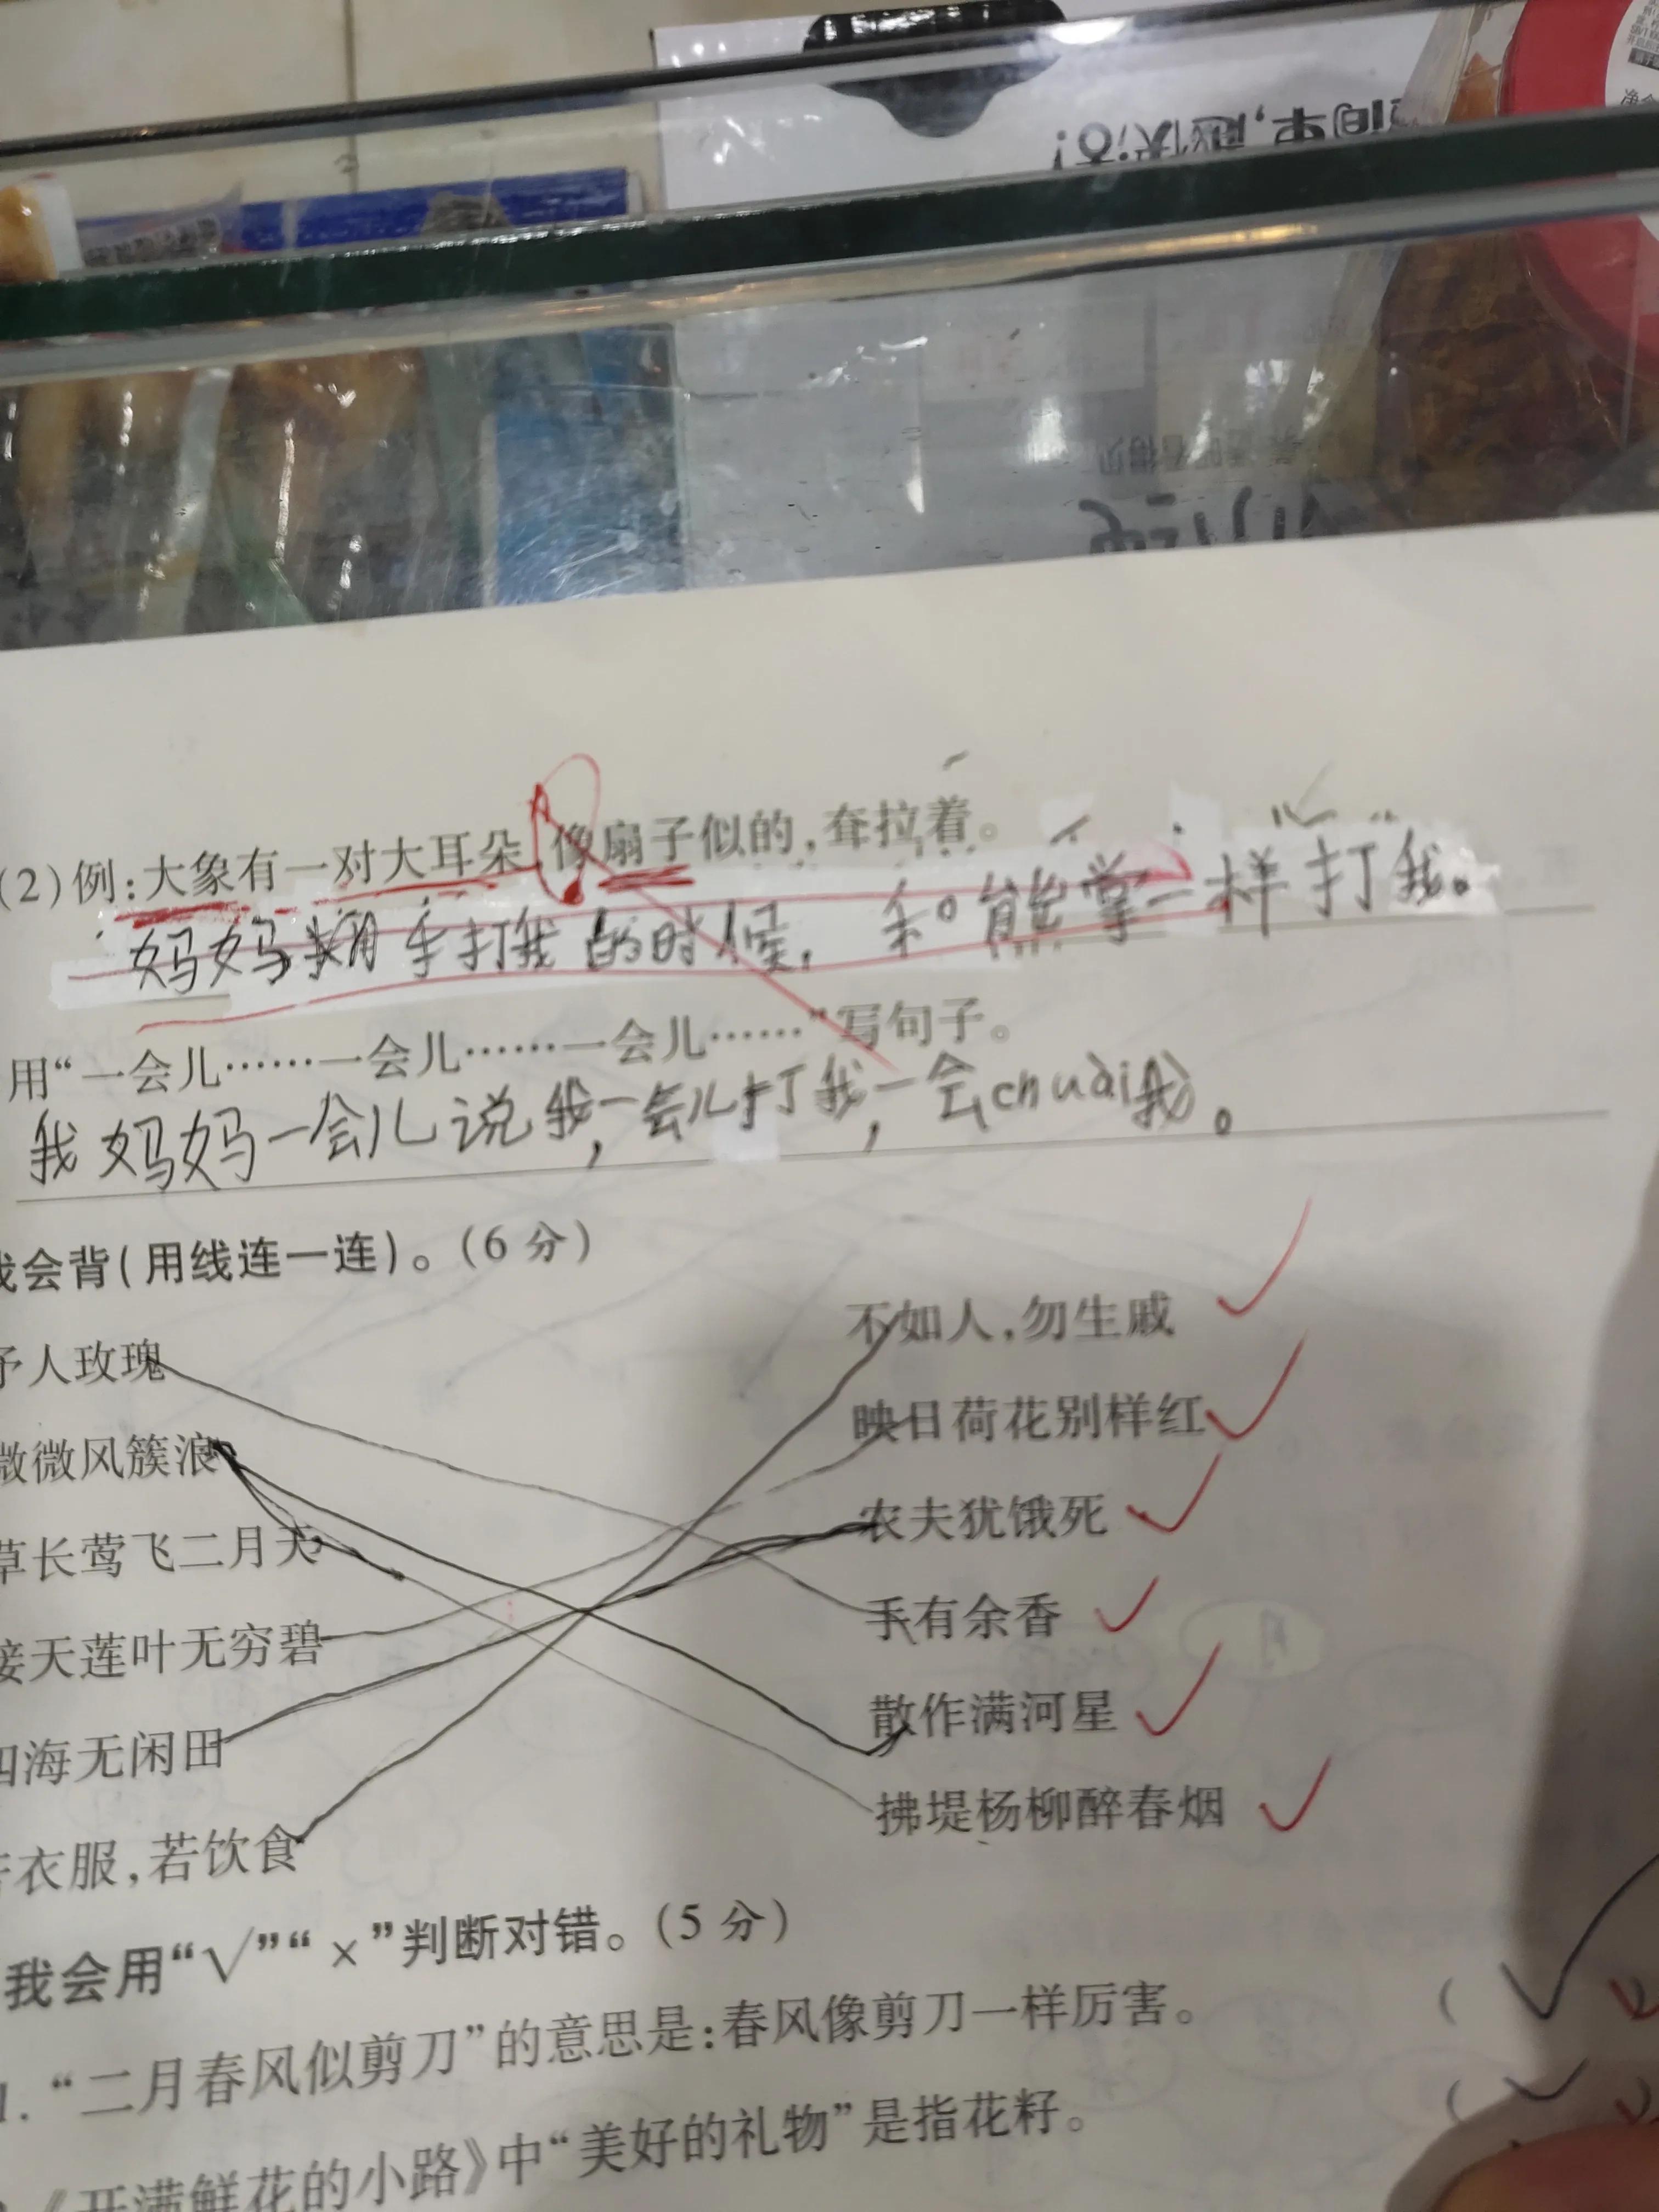 (2)例:大象有一对大耳朵,像扇子似的,耷拉着。
妈妈用手打我的时候,和熊掌一样打我。
用“一会儿……一会儿……一会儿……”写句子。
我妈妈一会儿说我,一会儿打我,一会chuài我。
我会背(用线连一连)。(6分)
予人玫瑰
不如人,勿生戚
微微风簇浪
映日荷花别样红
草长莺飞二月天
农夫犹饿死
接天莲叶无穷碧
手有余香
四海无闲田
散作满河星
衣服,若饮食
拂堤杨柳醉春烟
我会用“√”“×”判断对错。(5分)
1.“二月春风似剪刀”的意思是:春风像剪刀一样厉害。 (√
《开满鲜花的小路》中“美好的礼物”是指花籽。 (√